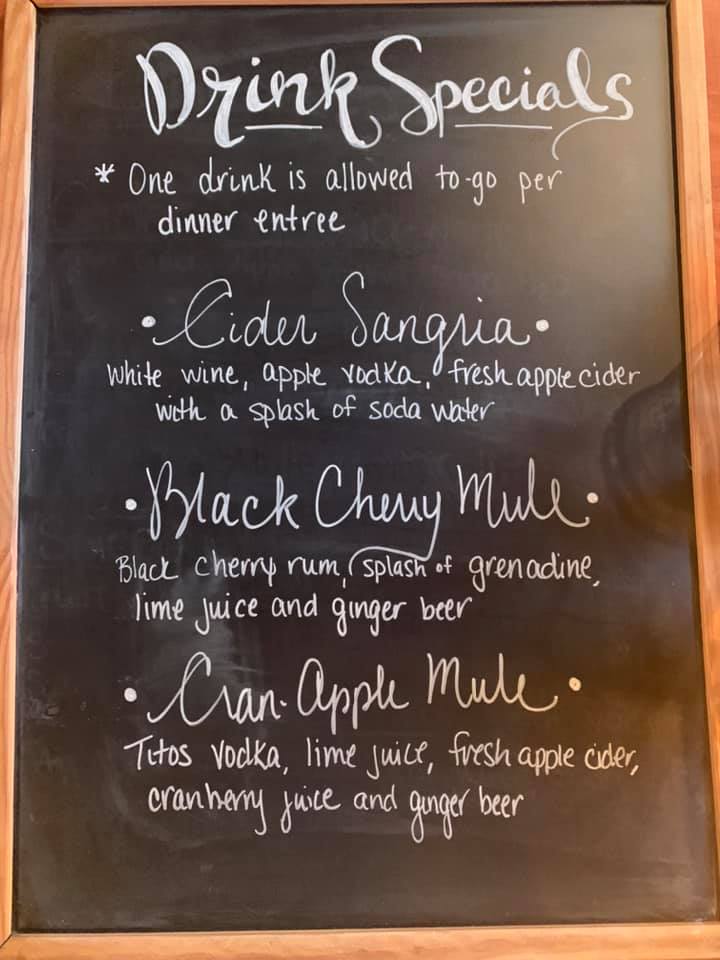 Drink Specials
* One drink is allowed to-go per
dinner entree
• Cider Sangria •
White wine, apple vodka, fresh apple cider
with a splash of soda water
• Black Cherry Mule •
Black cherry rum, splash of grenadine,
lime juice and ginger beer
• Cran-Apple Mule •
Titos vodka, lime juice, fresh apple cider,
cranberry juice and ginger beer